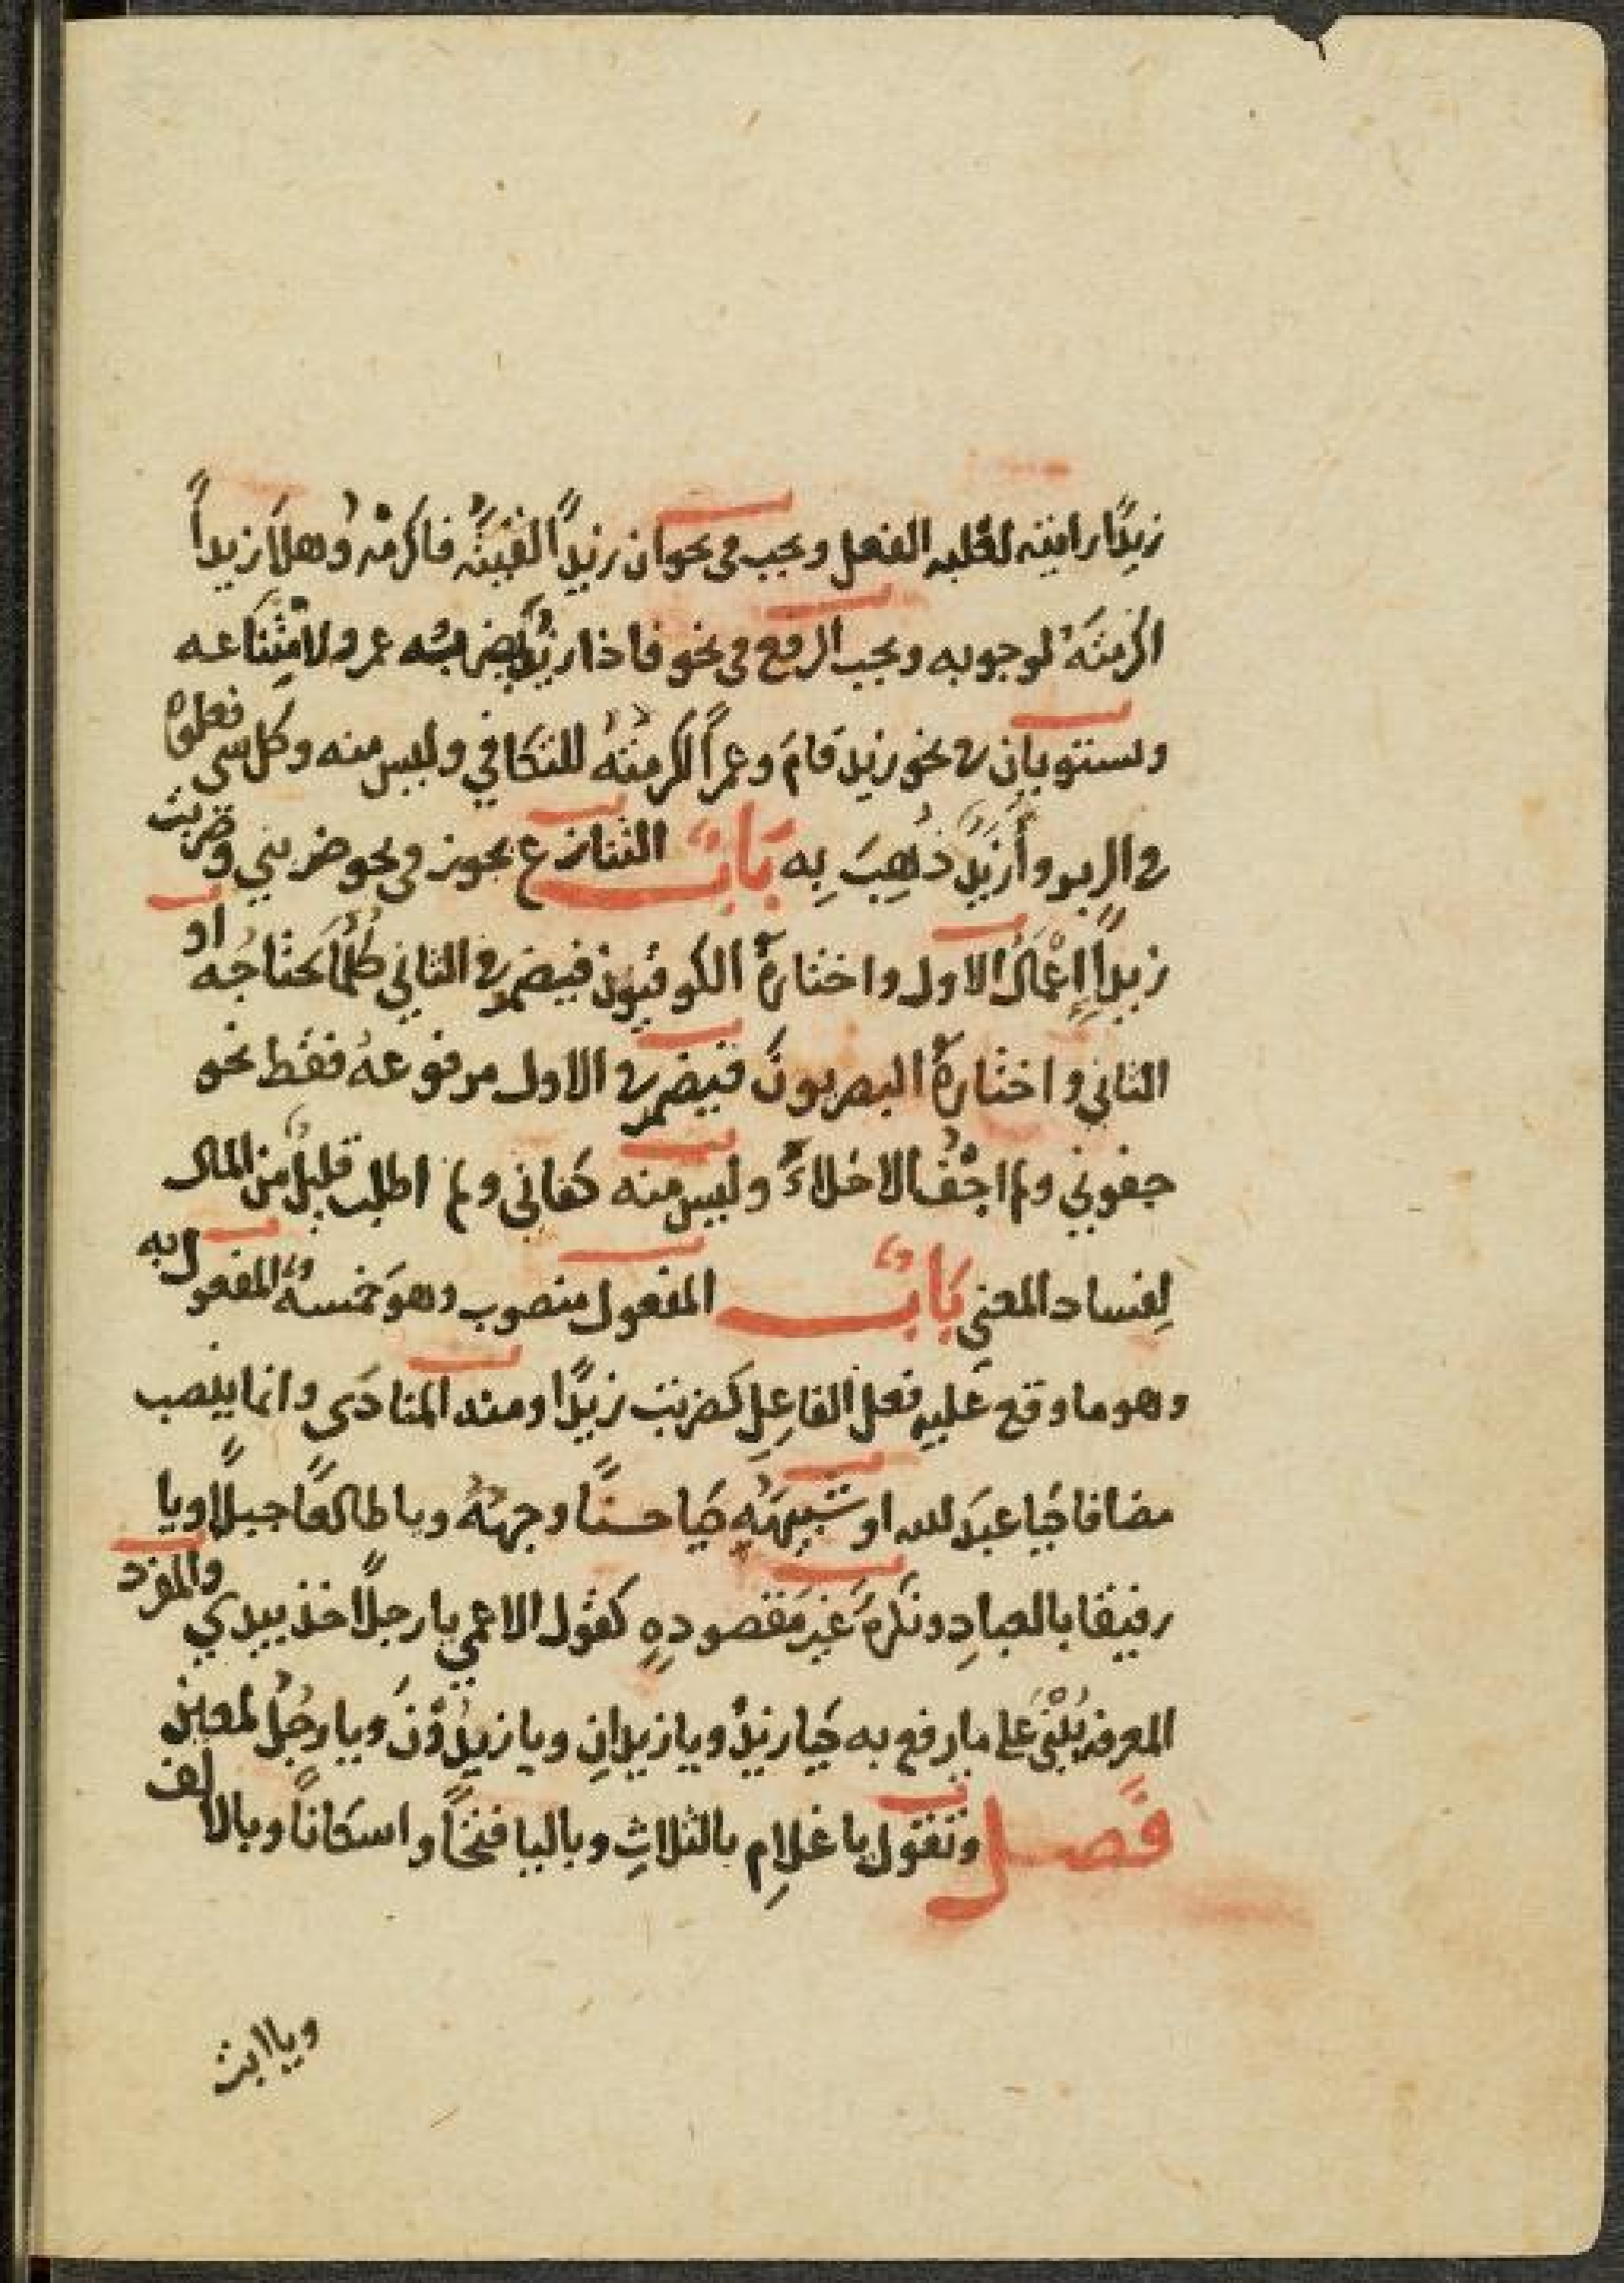 زيدًا رايته لغلبه الفعل ويجب فى نحو ان زيدًا لقيتَهُ فاكرمْه وهلا زيداً
اكرمتَهُ لوجوبه ويجب الرفع فى نحو فاذا زيدٌ يضربُه عمرو لامتناعه
ويستويان فى نحو زيد قامَ وعمراً اكرمتهُ للتكافي وليس منه وكل شي فعلوهُ
فى الزبر وأزيدٌ ذُهِبَ بِه بَابٌ التنازع يجوز فى نحو ضربني وضربت
زيداً إِعْمَالُ الاول واختارهُ الكوفيون فيضمر فى الثاني كُلَّمَا يحتاجُهُ او
الثاني واختارهُ البصريونَ فيضمر فى الاول مرفوعهُ فقط نحو
جفوني ولم اجْفُ الاخلاءَ وليس منه كفاني ولم اطلب قليلٌ من المال
لِفساد المعني بَابٌ المفعول منصوب وهوَ خمسةٌ المفعول به
وهو ما وقع عليهِ فعل الفاعِلِ كضربت زيدًا ومنه المنادَى وانما ينصب
مضافا كَيا عبدَ لله او شبيهَهُ كَيا حسنًا وجههُ ويا طالعًا جبلًا ويا
رفيقا بالعبادِ ونكرةً غيرَ مقصودهٍ كقول الاعمي يا رجلًا خذ بيدي والمفرد
المعرفه يُبْنَى على ما يرفع به كَيا زيدُ ويا زيدانِ ويا زيدُوْنَ ويا رجُلُ لمعين
فَصل وتقول يا غلامِ بالثلاثِ وباليا فتحًا واسكانًا وبالالف
ويا ابت